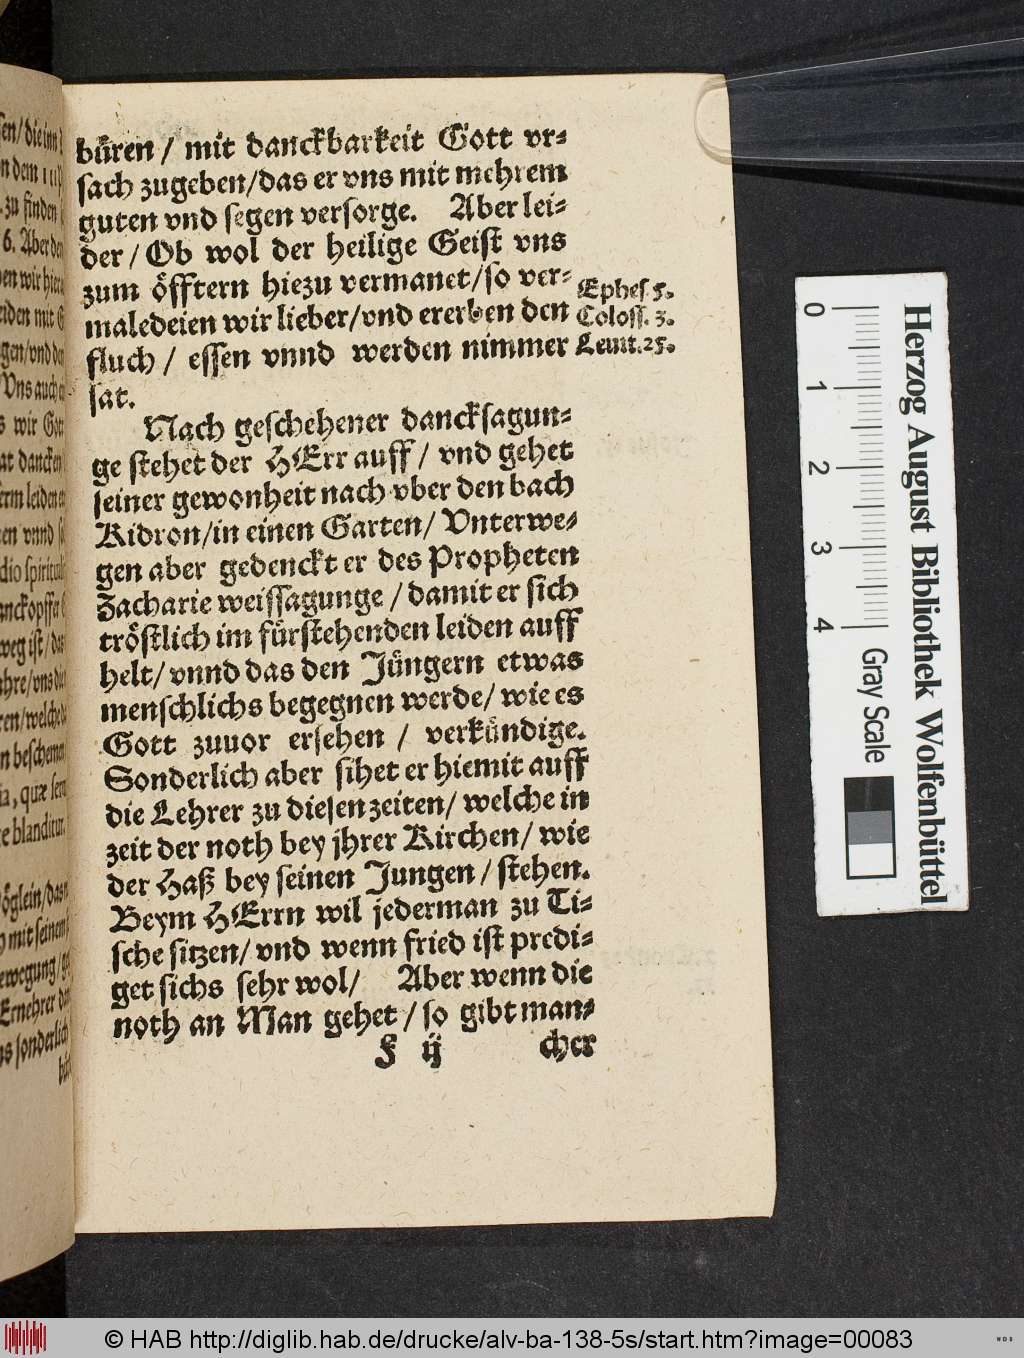 büren / mit danckbarkeit Gott vr=
sach zugeben/das er vns mit mehrem
guten vnd segen versorge. Aber lei=
der / Ob wol der heilige Geist vns
zum öfftern hiezu vermanet/so ver=
maledeien wir lieber/vnd ererben den
fluch / essen vnnd werden nimmer
sat.
Ephes. 5.
Coloss. 3.
Leuit. 25.
Nach geschehener dancksagun=
ge stehet der HErr auff / vnd gehet
seiner gewonheit nach vber den bach
Kidron/in einen Garten/ Vnterwe=
gen aber gedenckt er des Propheten
Zacharie weissagunge / damit er sich
tröstlich im fürstehenden leiden auff
helt/ vnnd das den Jüngern etwas
menschlichs begegnen werde/ wie es
Gott zuuor ersehen / verkündige.
Sonderlich aber sihet er hiemit auff
die Lehrer zu diesen zeiten/ welche in
zeit der noth bey jhrer Kirchen/ wie
der Haß bey seinen Jungen / stehen.
Beym HErrn wil jederman zu Ti=
sche sitzen/ vnd wenn fried ist predi=
get sichs sehr wol/ Aber wenn die
noth an Man gehet / so gibt man=
F ij cher
Herzog August Bibliothek Wolfenbüttel
0 1 2 3 4 Gray Scale
© HAB http://diglib.hab.de/drucke/alv-ba-138-5s/start.htm?image=00083